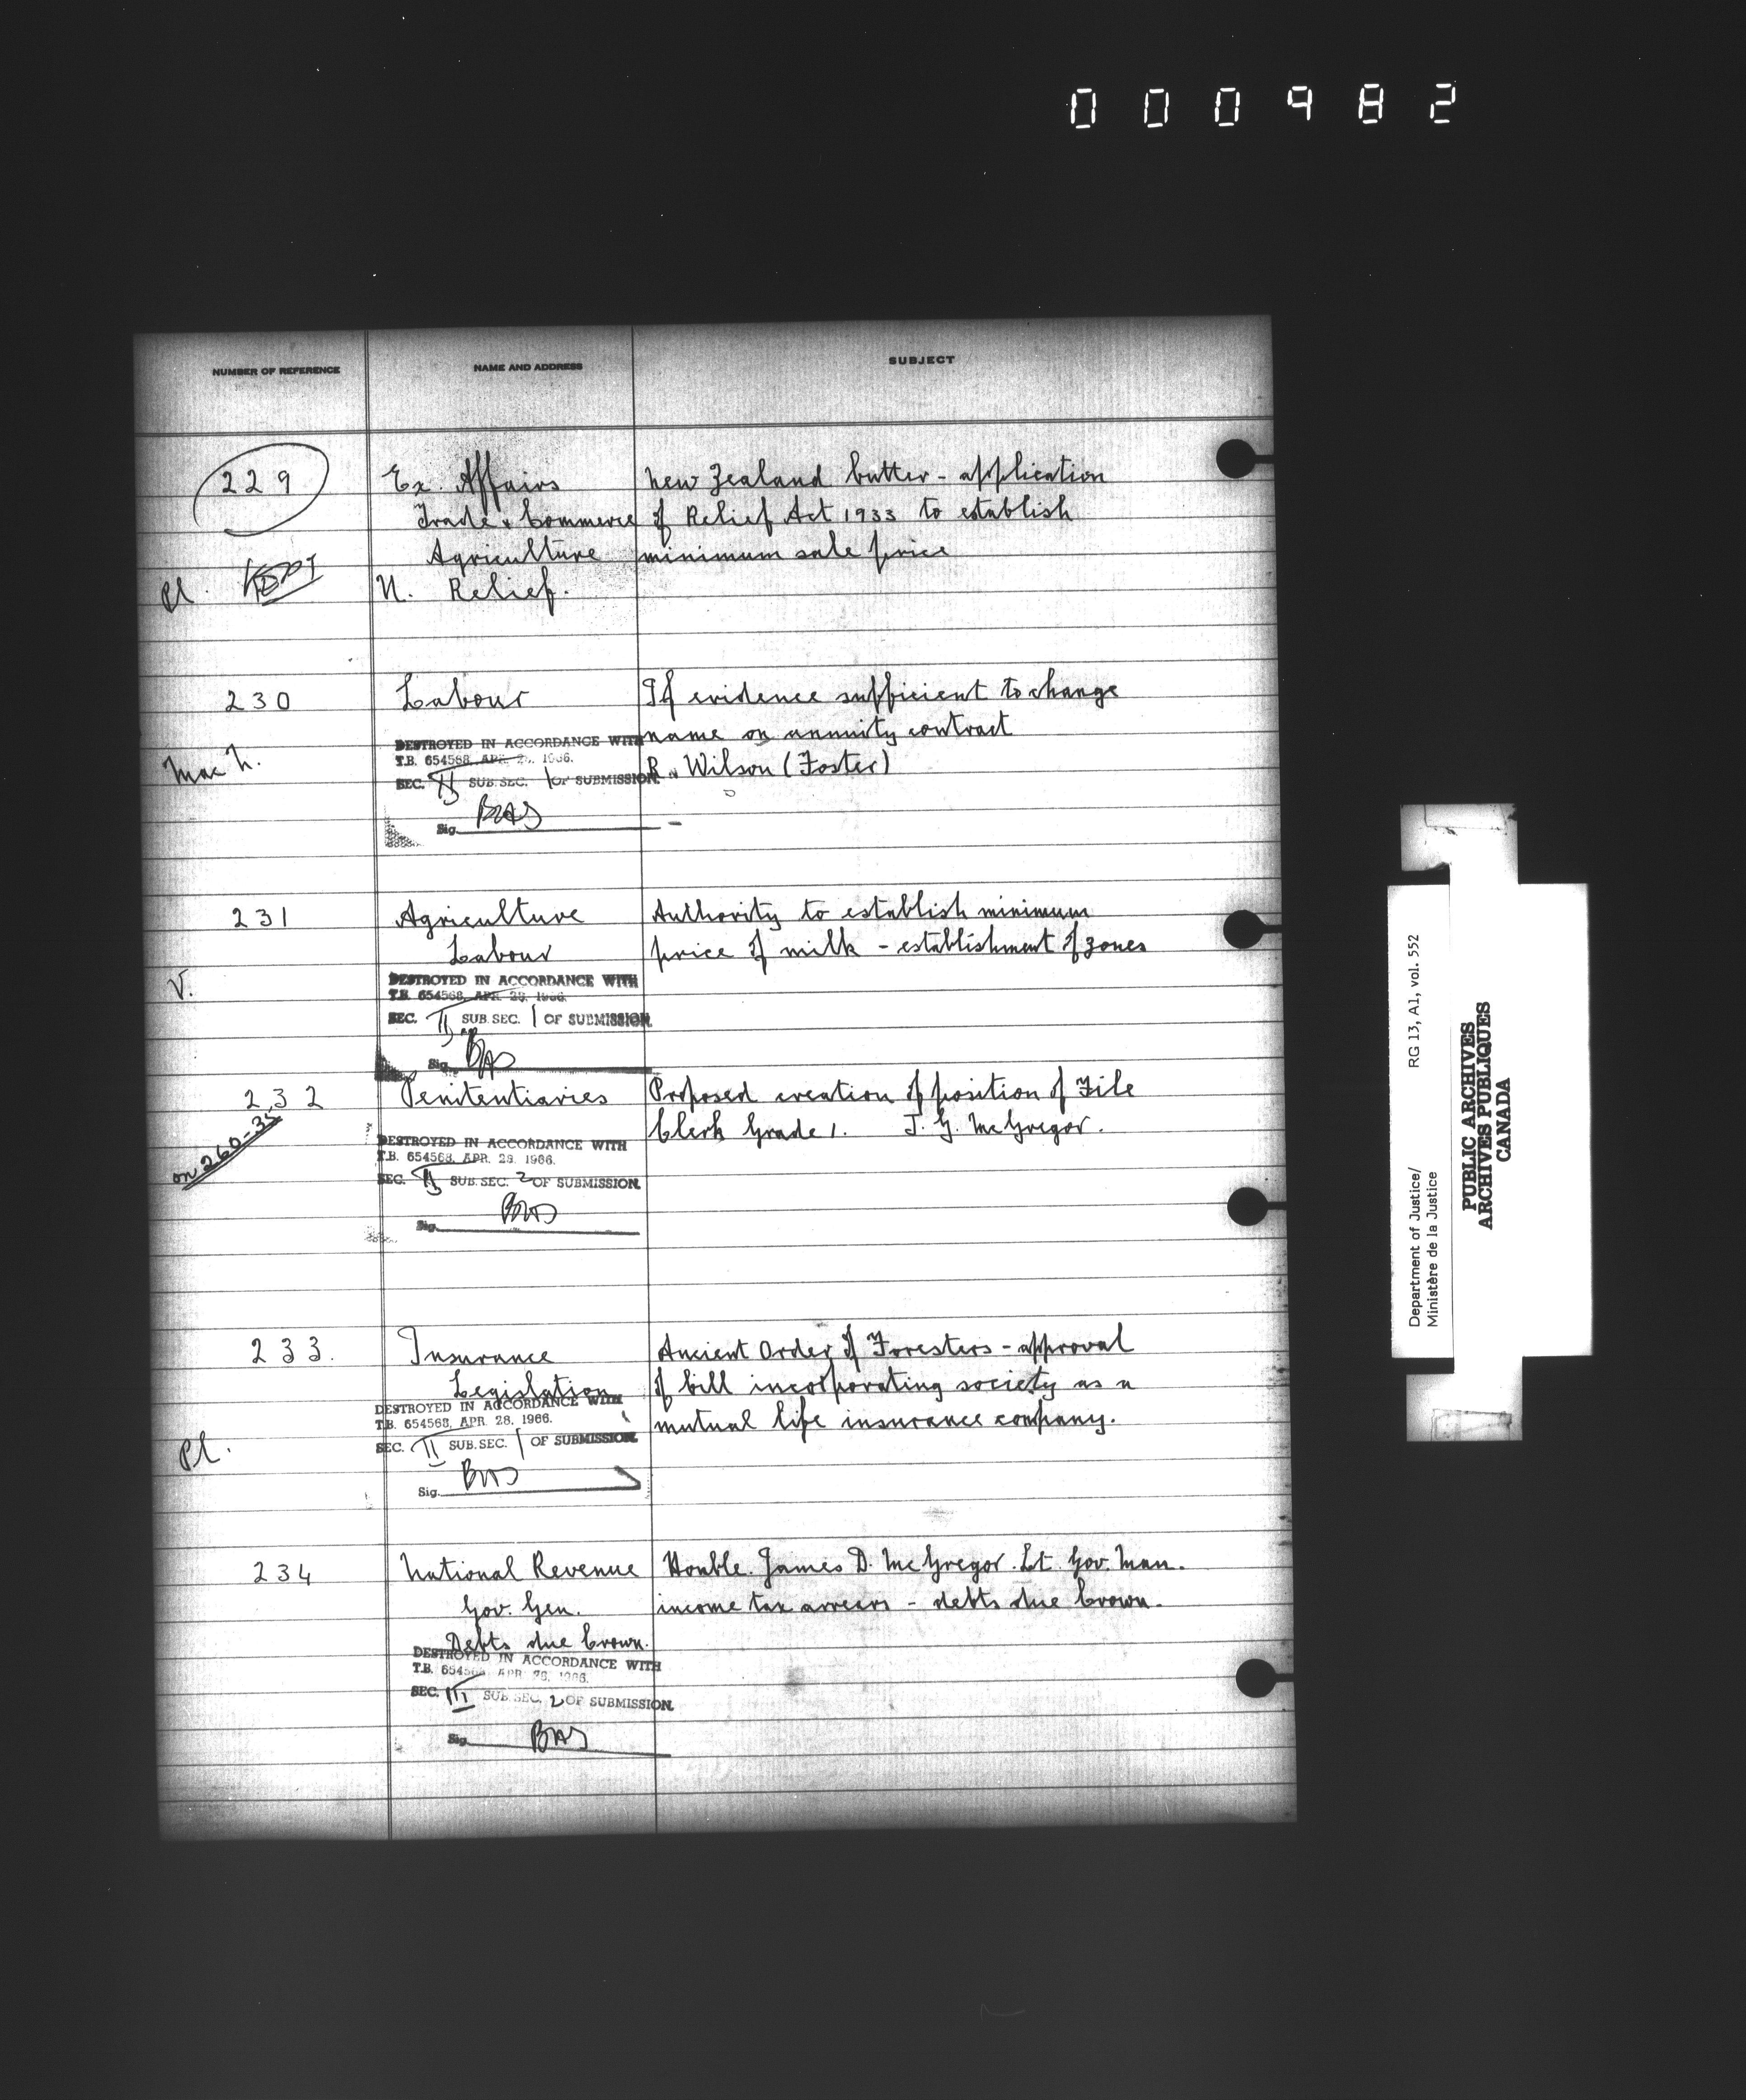 000982
NUMBER OF REFERENCE NAME AND ADDRESS SUBJECT
229 Ex. Affairs New Zealand butter - application
Trade & Commerce of Relief Act 1933 to establish
Agriculture minimum sale price
Pl. KEPT U. Relief.
230 Labour If evidence sufficient to change
name on annuity contract
DESTROYED IN ACCORDANCE WITH
Mac N. T.B. 654568, APR. 28. 1966. R. Wilson (Foster)
SEC. II SUB. SEC. 1 OF SUBMISSION.
Sig. BAS
231 Agriculture Authority to establish minimum
Labour price of milk - establishment of zones
V. DESTROYED IN ACCORDANCE WITH
T.B. 654568, APR. 28. 1966.
SEC. II SUB. SEC. 1 OF SUBMISSION
Sig. BAS
232 Penitentiaries Proposed creation of position of File
on 260-35 Clerk Grade 1. J. G. McGregor.
DESTROYED IN ACCORDANCE WITH
T.B. 654568, APR. 28. 1966.
SEC. II SUB. SEC. 2 OF SUBMISSION.
Sig. BAS
233. Insurance Ancient Order of Foresters - approval
Legislation of bill incorporating society as a
DESTROYED IN ACCORDANCE WITH
T.B. 654568, APR. 28. 1966. mutual life insurance company.
Pl. SEC. II SUB. SEC. 1 OF SUBMISSION.
Sig. BAS
234 National Revenue Honble. James D. McGregor. Lt. Gov. Man.
Gov. Gen. income tax arrears - debts due Crown.
Debts due Crown.
DESTROYED IN ACCORDANCE WITH
T.B. 654568, APR. 28. 1966.
SEC. III SUB. SEC. 2 OF SUBMISSION.
Sig. BAS
Department of Justice/ RG 13, A1, vol. 552
Ministère de la Justice
PUBLIC ARCHIVES
ARCHIVES PUBLIQUES
CANADA